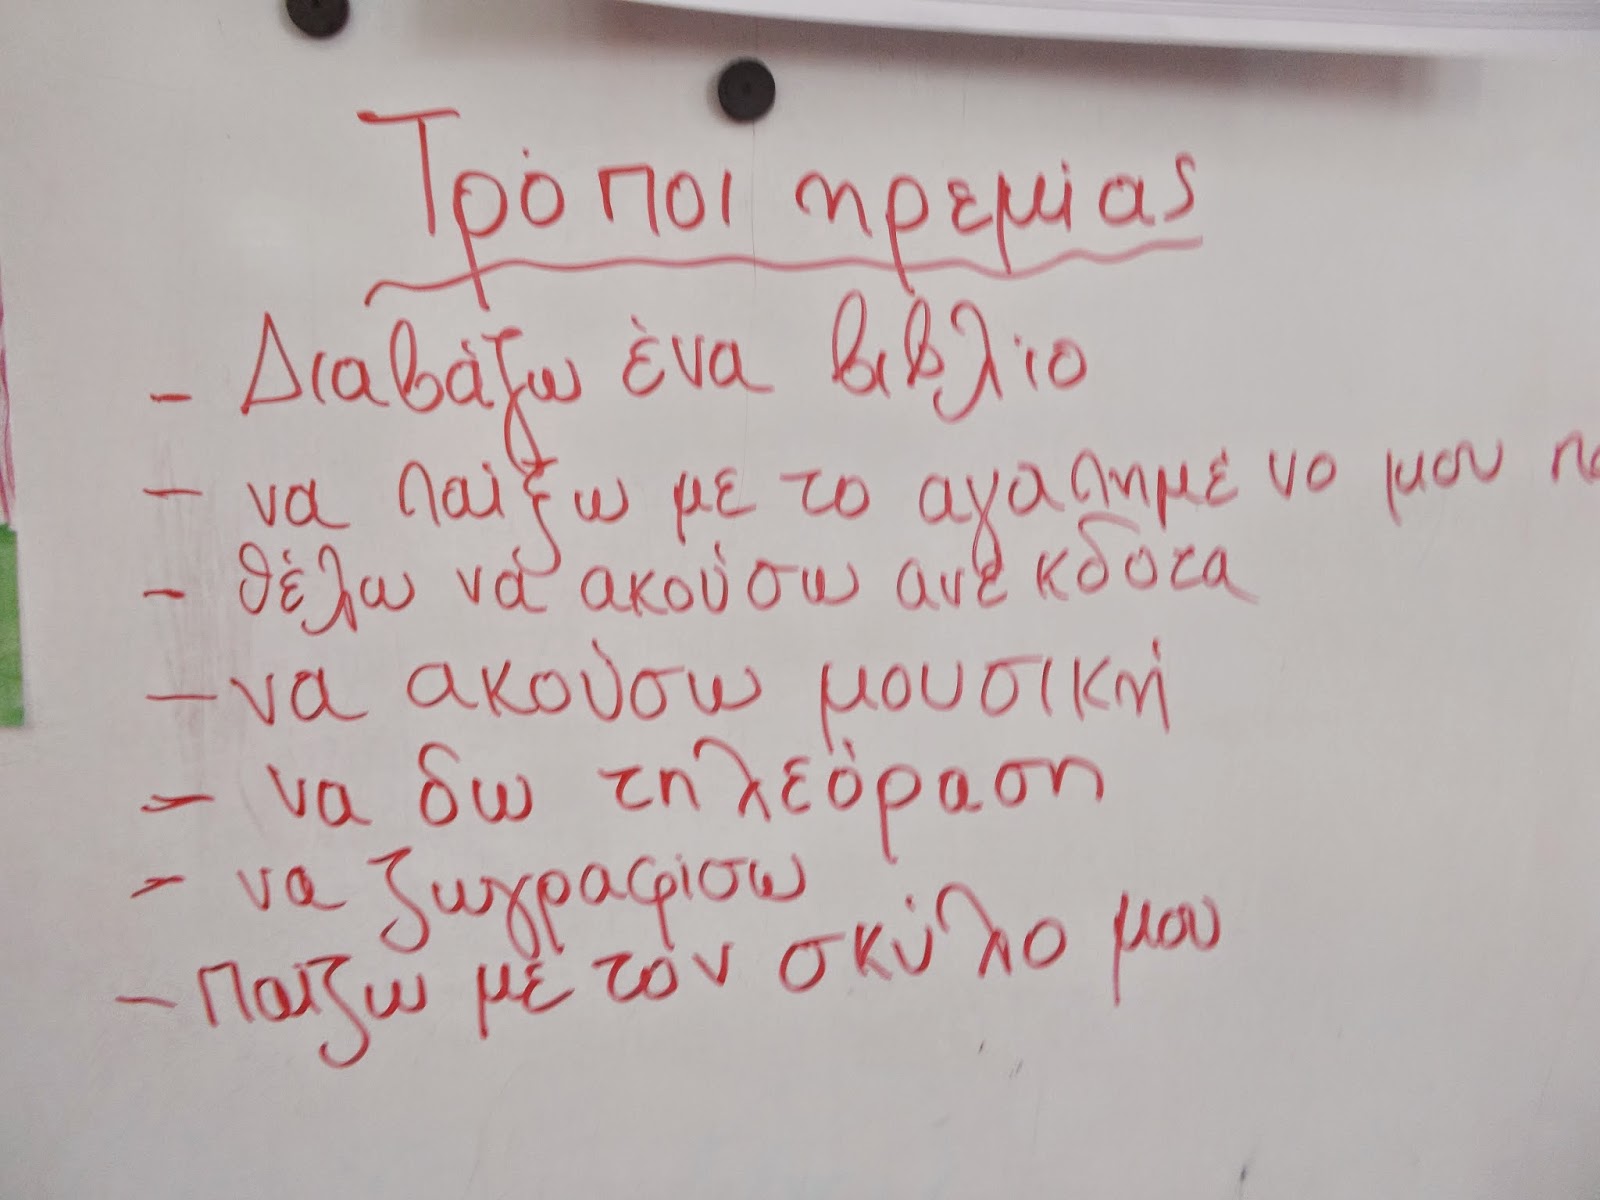 Τρόποι ηρεμίας
- Διαβάζω ένα βιβλίο
- να παίξω με το αγαπημένο μου
- θέλω νά ακούσω ανέκδοτα
- να ακούσω μουσική
- να δω τηλεόραση
- να ζωγραφίσω
- Παίζω με τον σκύλο μου